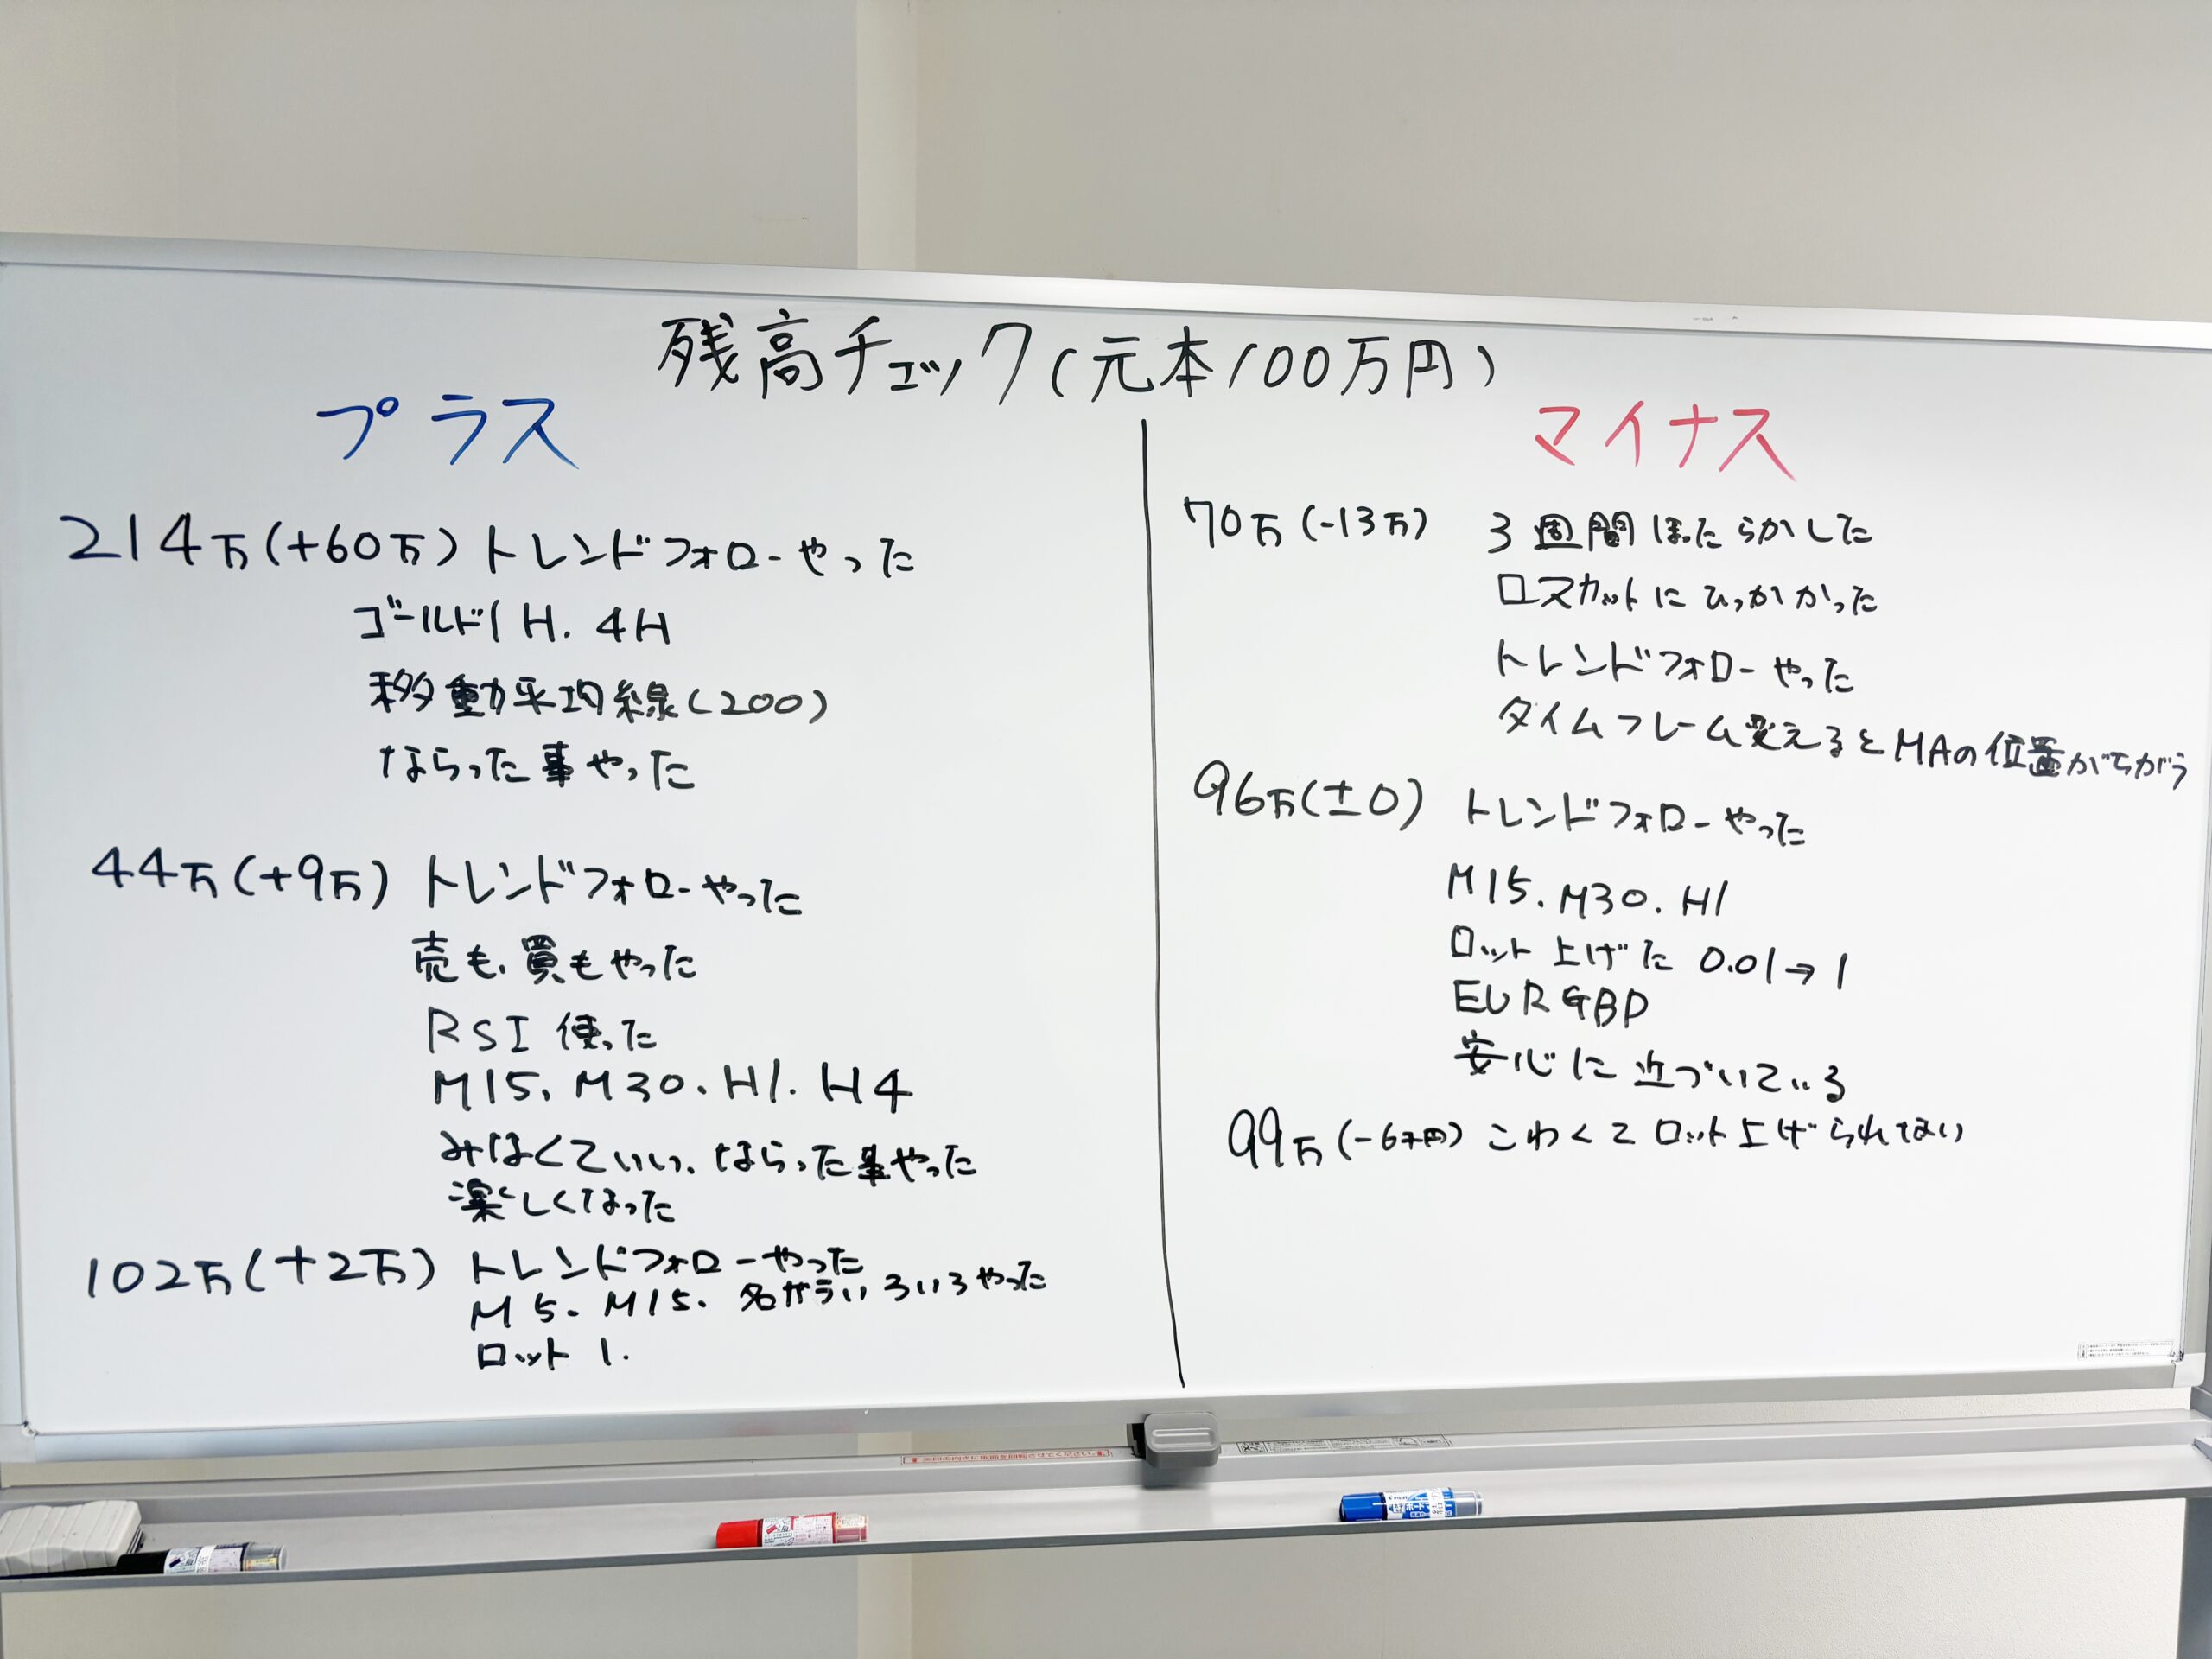 残高チェック(元本100万円)
プラス
214万(+60万) トレンドフォローやった
ゴールド1H. 4H
移動平均線(200)
ならった事やった
44万(+9万) トレンドフォローやった
売も、買もやった
RSI 使った
M15. M30. H1. H4
みなくていい、ならった事やった
楽しくなった
102万(+2万) トレンドフォローやった
M5. M15. 名がらいろいろやった
ロット 1.
マイナス
70万(-13万) 3週間ほったらかした
ロスカットにひっかかった
トレンドフォローやった
タイムフレーム変えるとMAの位置がちがう
96万(±0) トレンドフォローやった
M15. M30. H1
ロット上げた 0.01→1
EURGBP
安心に近づいている
99万(-6千円) こわくてロット上げられない